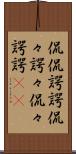 侃侃諤諤侃
々諤々侃々
諤諤